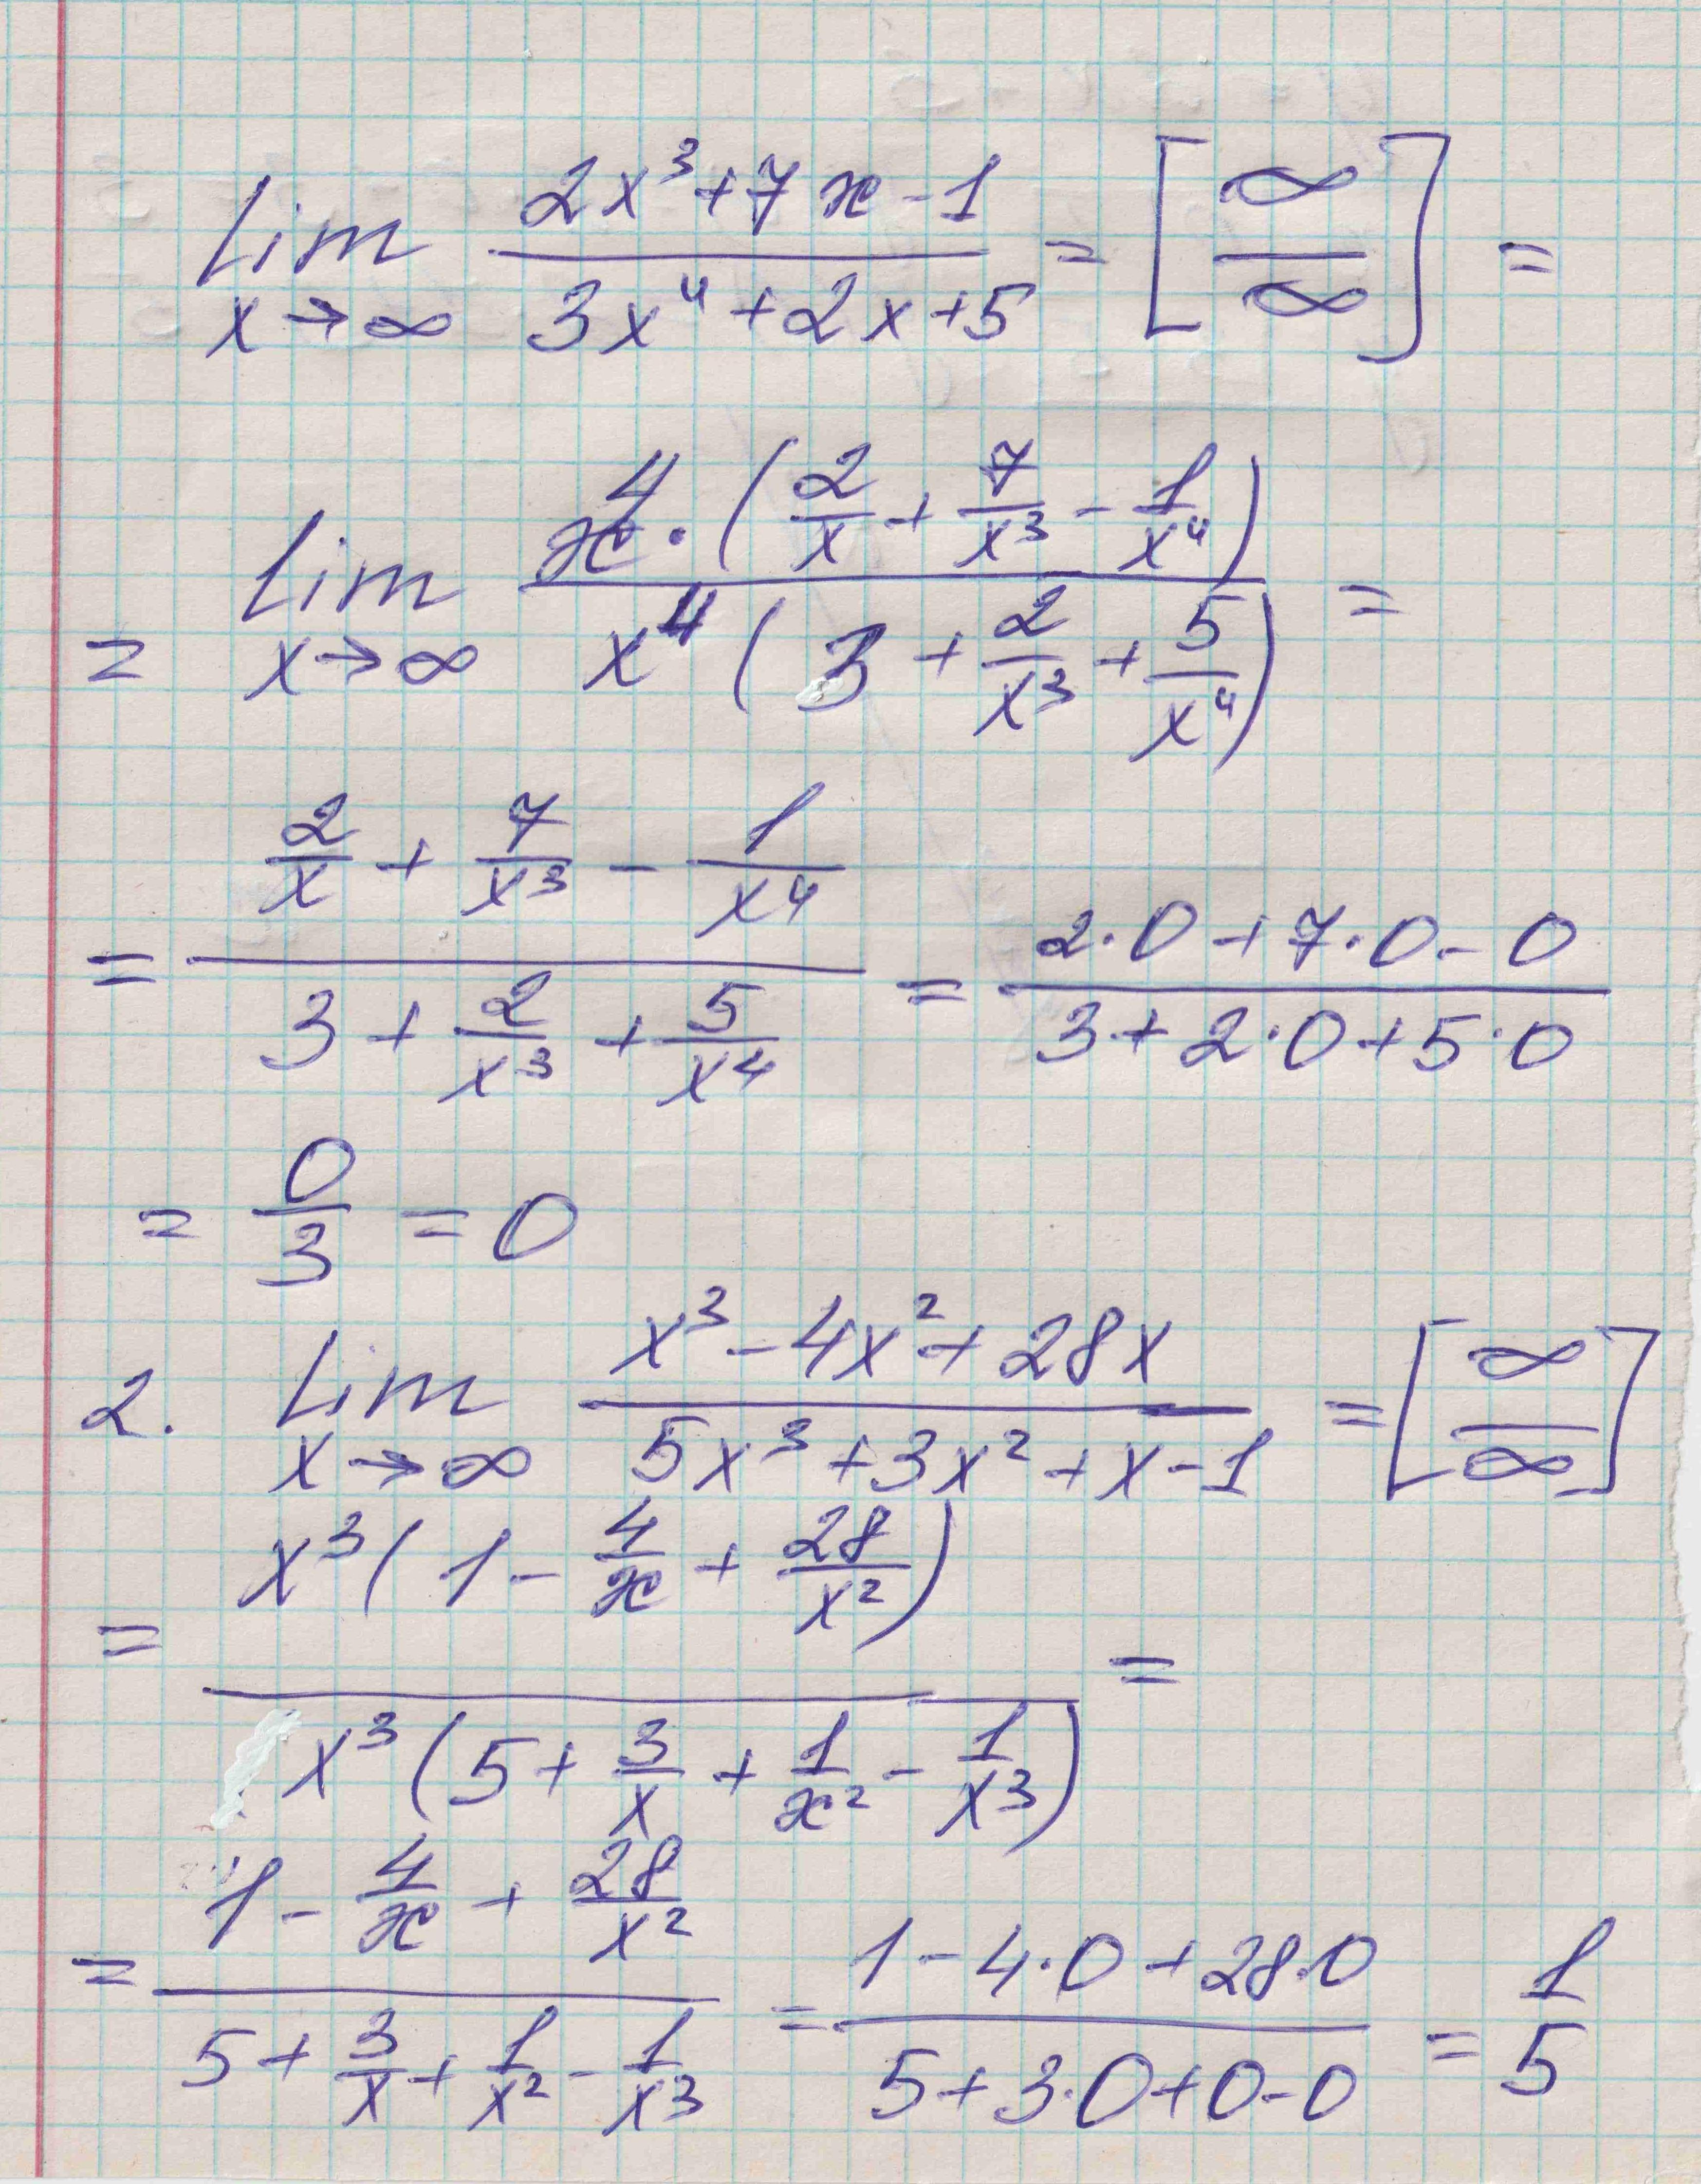 lim x→∞ (2x³+7x-1)/(3x⁴+2x+5) = [∞/∞] =
= lim x→∞ (x⁴·(2/x + 7/x³ - 1/x⁴))/(x⁴(3 + 2/x³ + 5/x⁴)) =
= (2/x + 7/x³ - 1/x⁴)/(3 + 2/x³ + 5/x⁴) = (2·0+7·0-0)/(3+2·0+5·0)
= 0/3 = 0
2. lim x→∞ (x³-4x²+28x)/(5x³+3x²+x-1) = [∞/∞]
= (x³(1 - 4/x + 28/x²))/(x³(5 + 3/x + 1/x² - 1/x³)) =
= (1 - 4/x + 28/x²)/(5 + 3/x + 1/x² - 1/x³) = (1-4·0+28·0)/(5+3·0+0-0) = 1/5